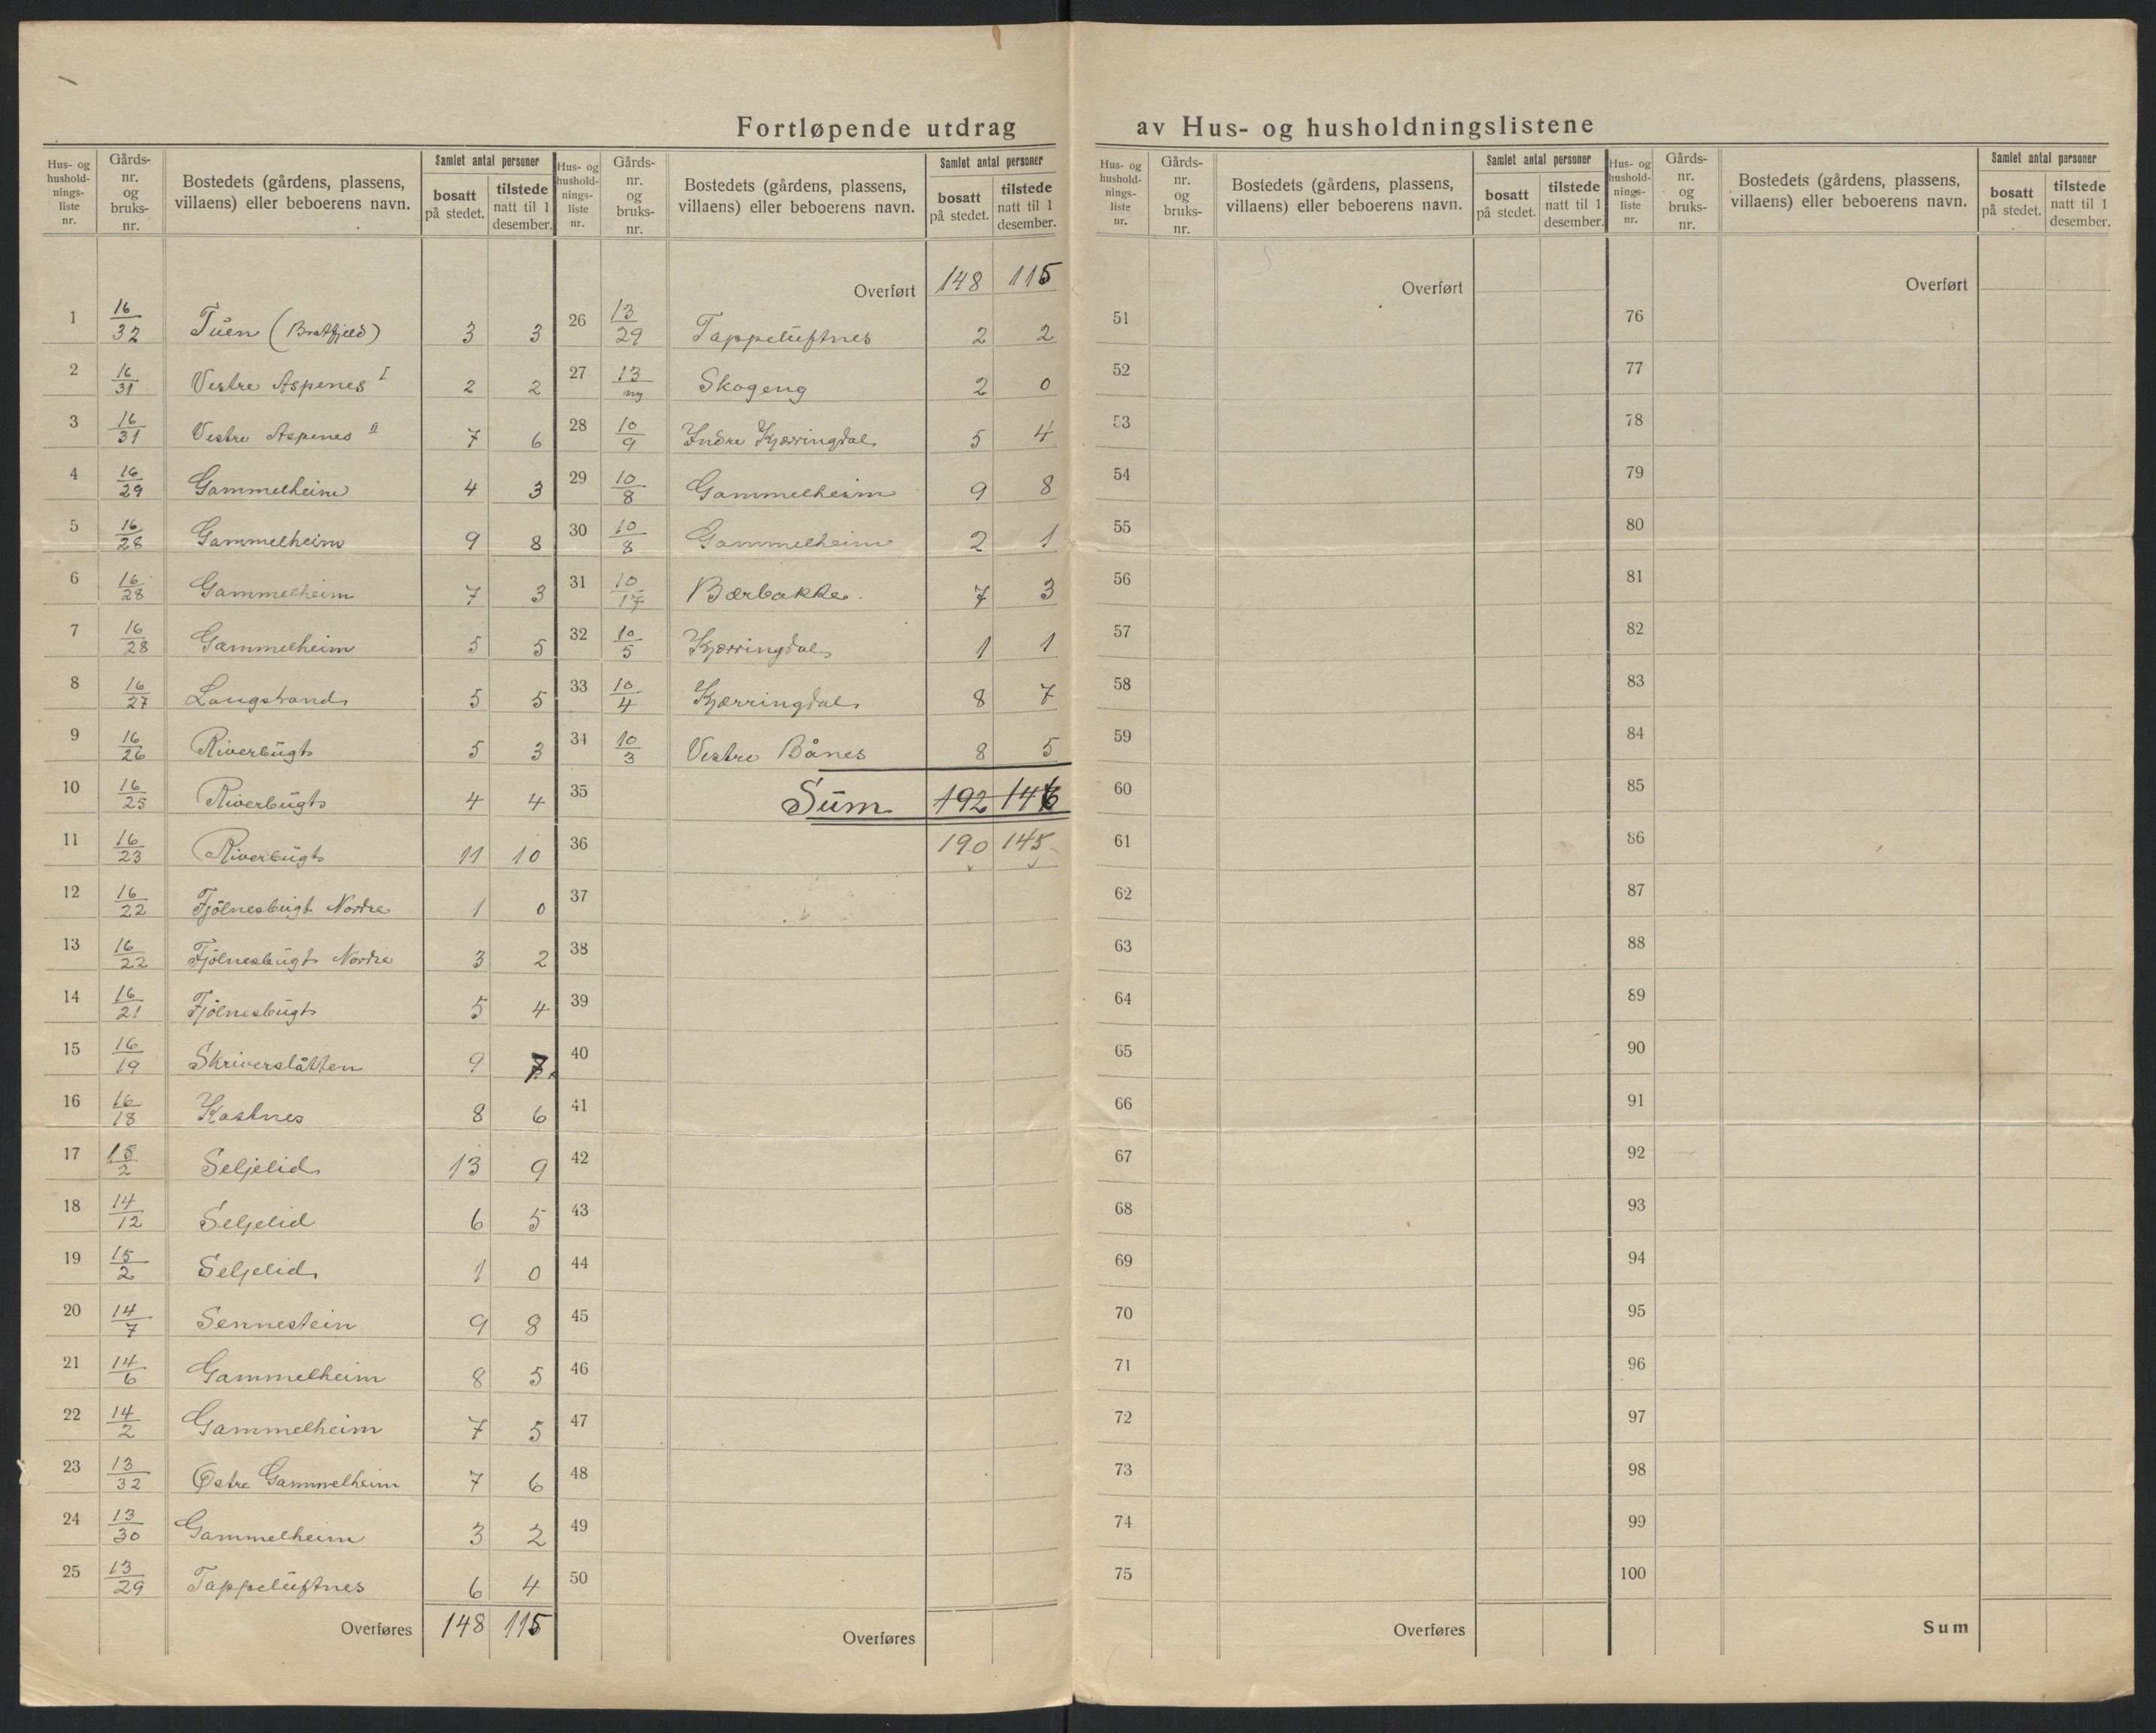 Fortløpende utdrag av Hus- og husholdningslistene
Hus- og husholdningsliste nr. Gårds-nr. og bruks-nr. Bostedets (gårdens, plassens, villaens) eller beboerens navn. Samlet antal personer bosatt på stedet. tilstede natt til 1 desember.
1 16/32 Tuen (Bratfjeld) 3 3
2 16/31 Vestre Aspenes I 2 2
3 16/31 Vestre Aspenes II 7 6
4 16/29 Gammelheim 4 3
5 16/28 Gammelheim 9 8
6 16/28 Gammelheim 7 3
7 16/28 Gammelheim 5 5
8 16/27 Langstrand 5 5
9 16/26 Riverbugt 5 3
10 16/25 Riverbugt 4 4
11 16/23 Riverbugt 11 10
12 16/22 Fjölnesbugt Nordre 1 0
13 16/22 Fjölnesbugt Nordre 3 2
14 16/21 Fjölnesbugt 5 4
15 16/19 Skriverslåtten 9 7
16 16/18 Kastnes 8 6
17 15/2 Seljelid 13 9
18 14/12 Seljelid 6 5
19 15/2 Seljelid 1 0
20 14/7 Sennestein 9 8
21 14/6 Gammelheim 8 5
22 14/2 Gammelheim 7 5
23 13/32 Østre Gammelheim 7 6
24 13/30 Gammelheim 3 2
25 13/29 Tappeluftnes 6 4
Overføres 148 115
Hus- og husholdningsliste nr. Gårds-nr. og bruks-nr. Bostedets (gårdens, plassens, villaens) eller beboerens navn. Samlet antal personer bosatt på stedet. tilstede natt til 1 desember.
Overført 148 115
26 13/29 Tappeluftnes 2 2
27 13/ny Skogeng 2 0
28 10/9 Indre Kjærringdal 5 4
29 10/8 Gammelheim 9 8
30 10/8 Gammelheim 2 1
31 10/17 Bærbakke. 7 3
32 10/5 Kjærringdal 1 1
33 10/4 Kjærringdal 8 7
34 10/3 Vestre Bånes 8 5
35 Sum 192 146
36 190 145
37
38
39
40
41
42
43
44
45
46
47
48
49
50
Overføres
Hus- og husholdnings-liste nr. Gårds-nr. og bruks-nr. Bostedets (gårdens, plassens, villaens) eller beboerens navn. Samlet antal personer bosatt på stedet. tilstede natt til 1 desember.
Overført
51
52
53
54
55
56
57
58
59
60
61
62
63
64
65
66
67
68
69
70
71
72
73
74
75
Overføres
Hus- og husholdnings-liste nr. Gårds-nr. og bruks-nr. Bostedets (gårdens, plassens, villaens) eller beboerens navn. Samlet antal personer bosatt på stedet. tilstede natt til 1 desember.
Overført
76
77
78
79
80
81
82
83
84
85
86
87
88
89
90
91
92
93
94
95
96
97
98
99
100
Sum